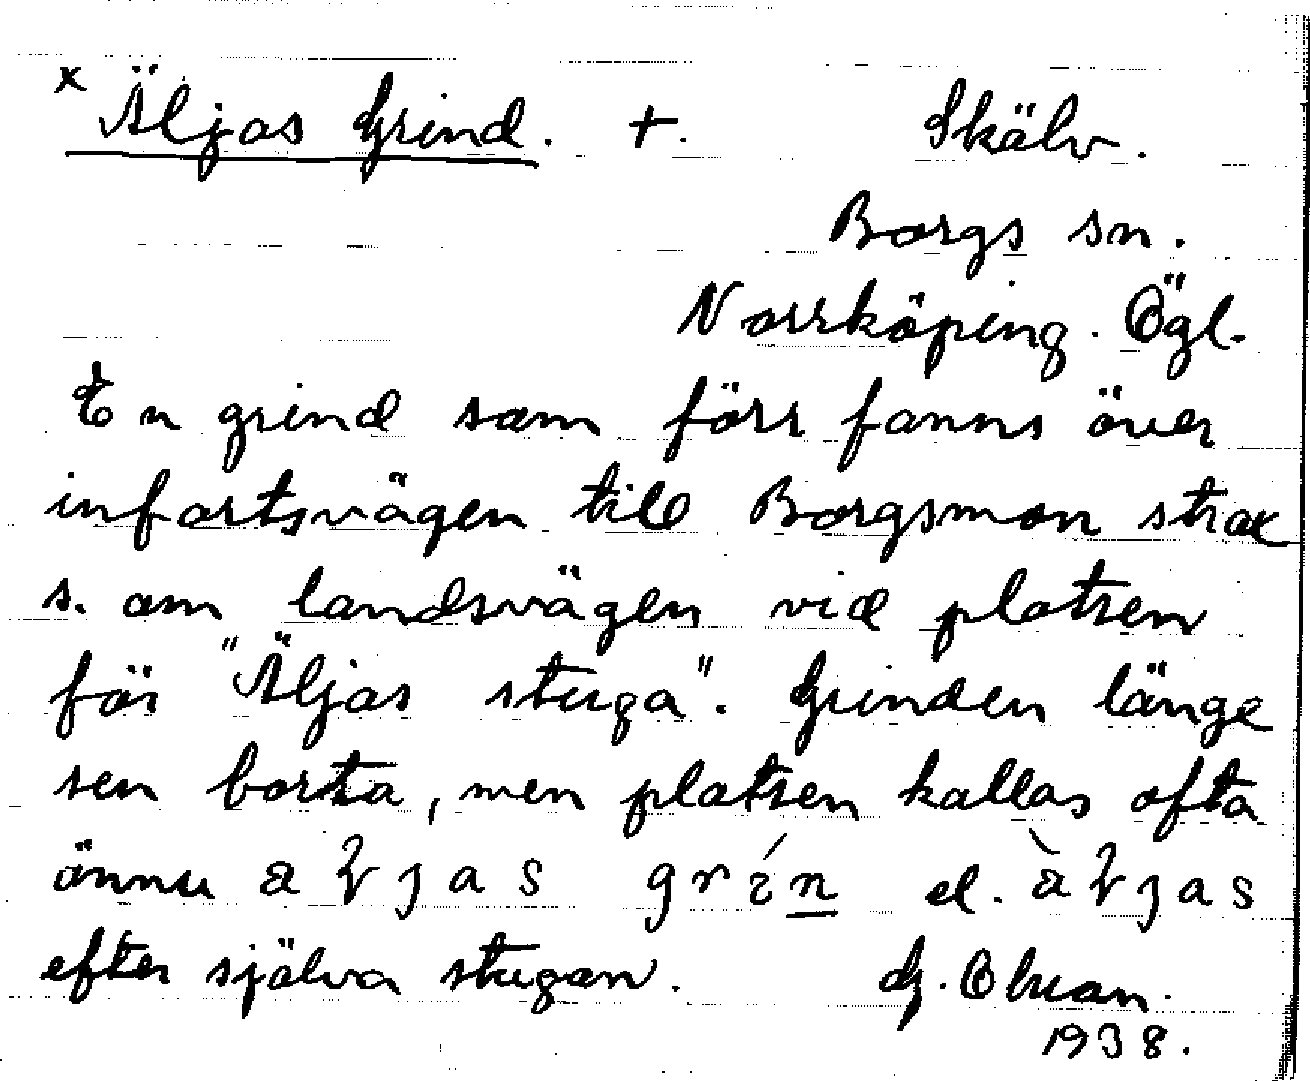 x Äljas Grind. +. Skälv.
Borgs sn.
Norrköping. Ögl.
En grind som förr fanns över
infartsvägen till Borgsmon strax
s. om landsvägen vid platsen
för "Äljas stuga". Grinden länge
sen borta, men platsen kallas ofta
ännu grín el.
efter själva stugan. G.
1938.